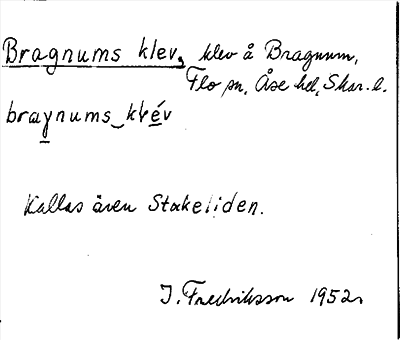 Bragnums klev, klev å Bragnum,
Flo sn, Åse hd, Skar. l.
braγnums_klév
Kallas även Stakeliden.
I. Fredriksson 1952.